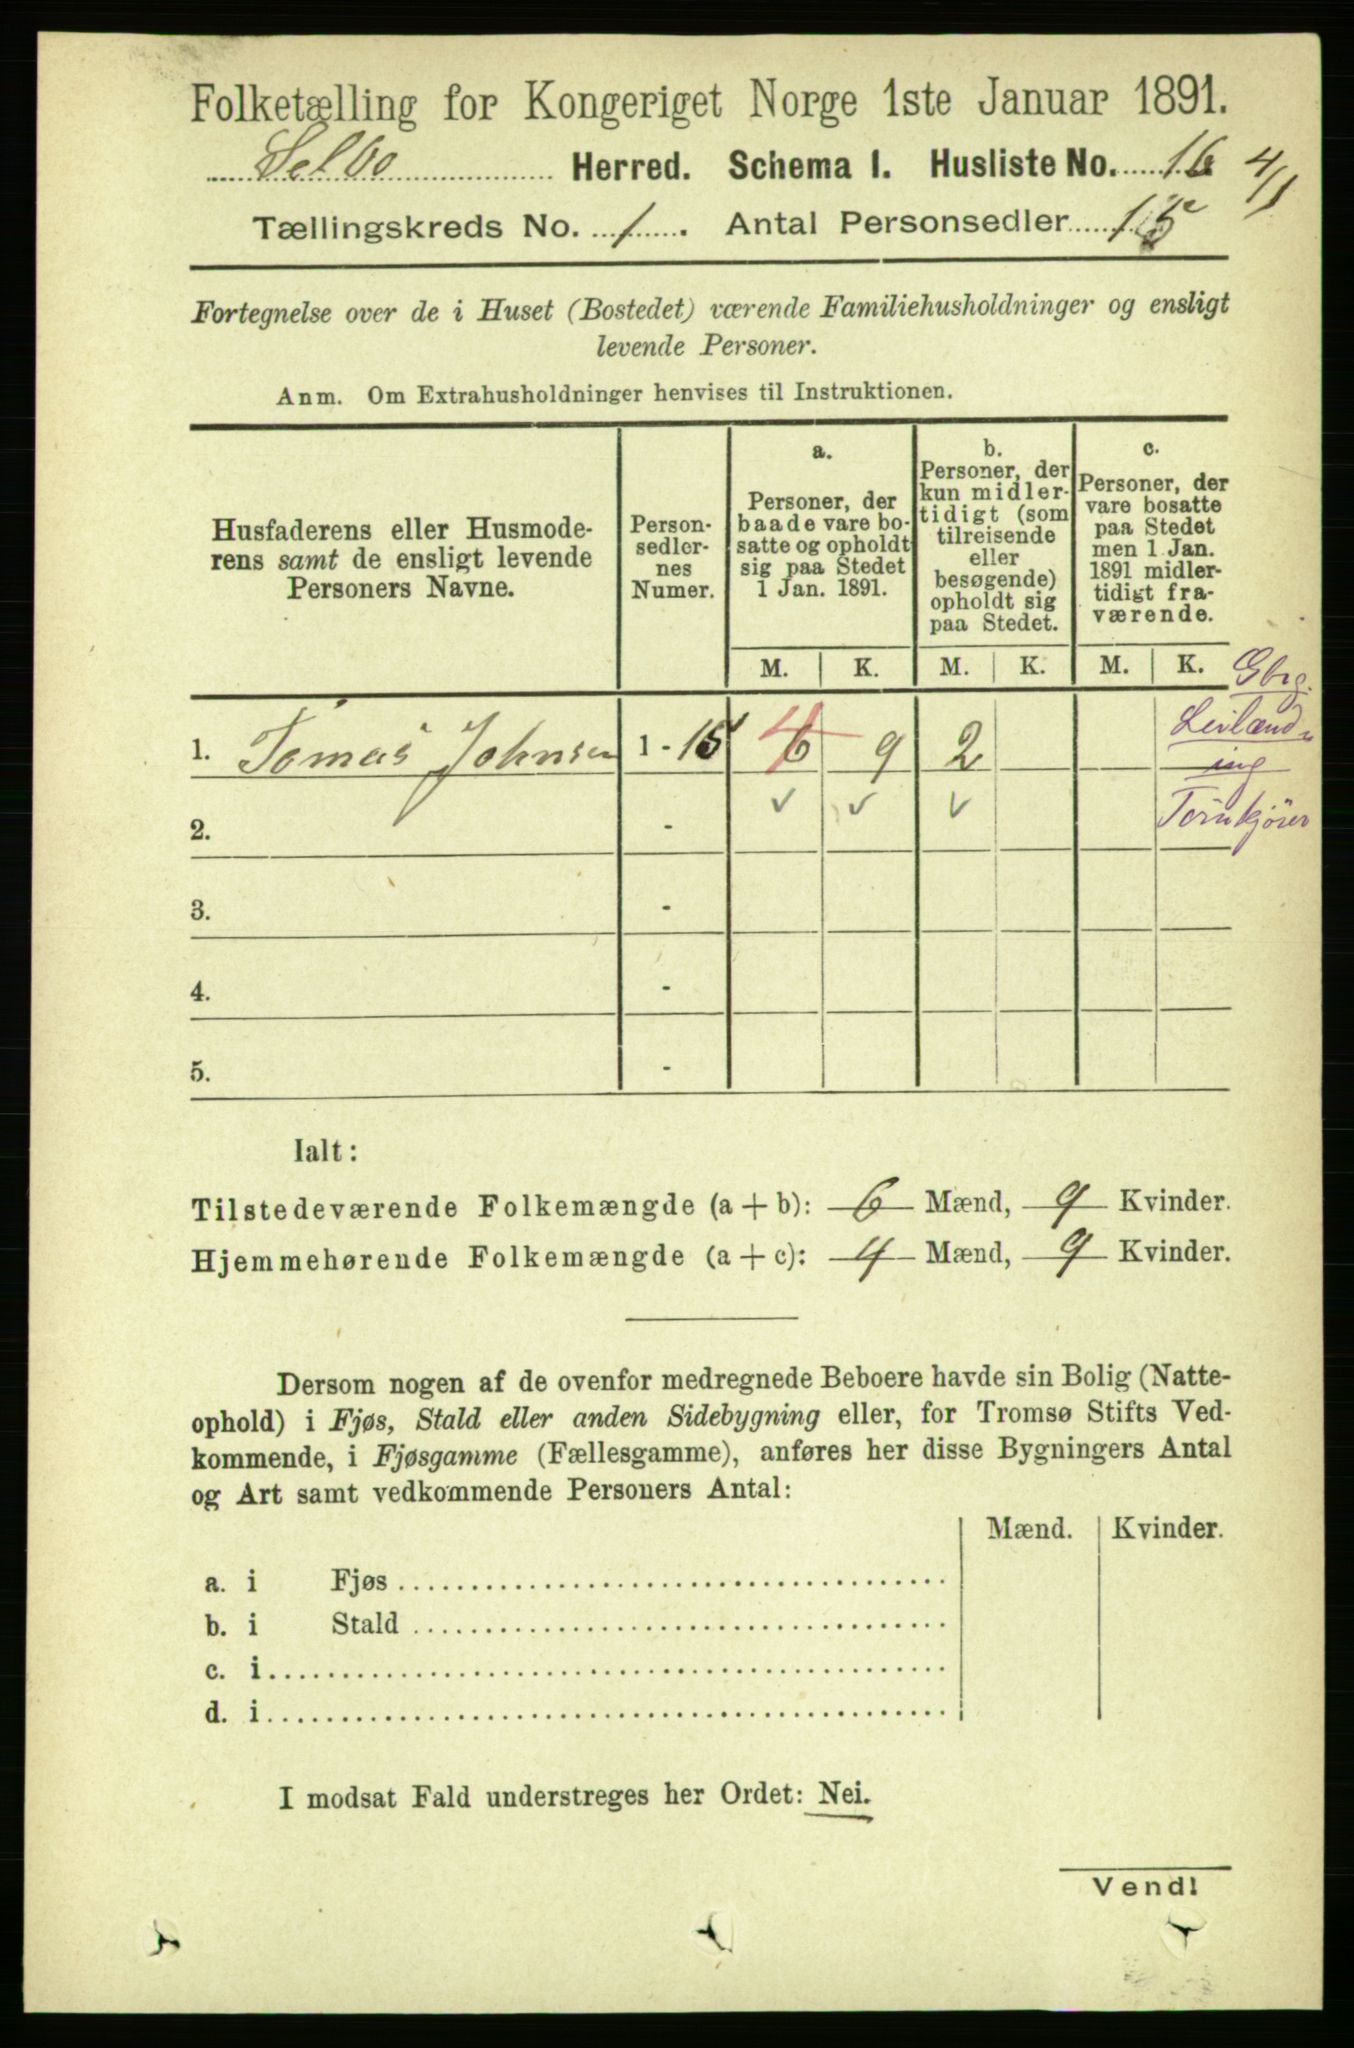 Folketælling for Kongeriget Norge 1ste Januar 1891.
Selbo Herred. Schema 1. Husliste No. 16 4/1
Tællingskreds No. 1. Antal Personsedler 15
Fortegnelse over de i Huset (Bostedet) værende Familiehusholdninger og ensligt
levende Personer.
Anm. Om Extrahusholdninger henvises til Instruktionen.
Husfaderens eller Husmode-
rens samt de ensligt levende
Personers Navne.
Person-
sedler-
nes
Numer.
a.
Personer, der
baade vare bo-
satte og opholdt
sig paa Stedet
1 Jan. 1891.
b.
Personer, der
kun midler-
tidigt (som
tilreisende
eller
besøgende)
opholdt sig
paa Stedet.
c.
Personer, der
vare bosatte
paa Stedet
men 1 Jan.
1891 midler-
tidigt fra-
værende.
M. K. M. K. M. K. Gbrg.
1. Tomas Johnsen 1 - 15 4 6 9 2 Leilænd-
ing
2. - Tørnkjörer
3. -
4. -
5. -
Ialt:
Tilstedeværende Folkemængde (a + b): 6 Mænd, 9 Kvinder.
Hjemmehørende Folkemængde (a + c): 4 Mænd, 9 Kvinder.
Dersom nogen af de ovenfor medregnede Beboere havde sin Bolig (Natte-
ophold) i Fjøs, Stald eller anden Sidebygning eller, for Tromsø Stifts Ved-
kommende, i Fjøsgamme (Fællesgamme), anføres her disse Bygningers Antal
og Art samt vedkommende Personers Antal:
Mænd. Kvinder.
a. i Fjøs
b. i Stald
c. i
d. i
I modsat Fald understreges her Ordet: Nei.
Vend!